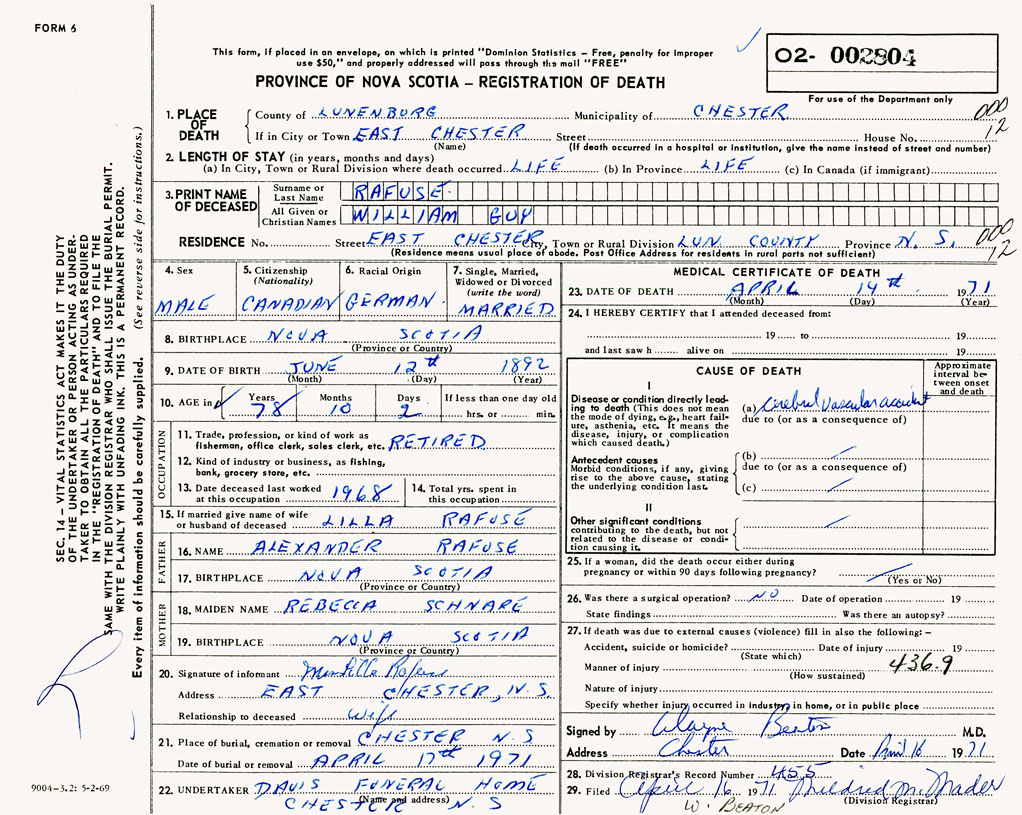 FORM 6
This form, if placed in an envelope, on which is printed "Dominion Statistics – Free, penalty for improper
use $50," and properly addressed will pass through the mail "FREE"
O2- 002804
PROVINCE OF NOVA SCOTIA – REGISTRATION OF DEATH
For use of the Department only
1. PLACE OF DEATH County of LUNENBURG Municipality of CHESTER 000
If in City or Town EAST CHESTER Street House No. 12
(Name) (If death occurred in a hospital or institution, give the name instead of street and number)
2. LENGTH OF STAY (in years, months and days)
(a) In City, Town or Rural Division where death occurred LIFE (b) In Province LIFE (c) In Canada (if immigrant)
3. PRINT NAME OF DECEASED Surname or Last Name RAFUSE
All Given or Christian Names WILLIAM GUY
RESIDENCE No. Street EAST CHESTER City, Town or Rural Division LUN. COUNTY Province N. S. 000
(Residence means usual place of abode. Post Office Address for residents in rural parts not sufficient) 12
4. Sex MALE
5. Citizenship (Nationality) CANADIAN
6. Racial Origin GERMAN
7. Single, Married, Widowed or Divorced (write the word) MARRIED
8. BIRTHPLACE NOVA SCOTIA
(Province or Country)
9. DATE OF BIRTH JUNE 12th 1892
(Month) (Day) (Year)
10. AGE in Years 78 Months 10 Days 2 If less than one day old hrs. or min.
OCCUPATION
11. Trade, profession, or kind of work as
fisherman, office clerk, sales clerk, etc. RETIRED
12. Kind of industry or business, as fishing,
bank, grocery store, etc.
13. Date deceased last worked at this occupation 1968
14. Total yrs. spent in this occupation
15. If married give name of wife
or husband of deceased LILLA RAFUSE
FATHER
16. NAME ALEXANDER RAFUSE
17. BIRTHPLACE NOVA SCOTIA
(Province or Country)
MOTHER
18. MAIDEN NAME REBECCA SCHNARE
19. BIRTHPLACE NOVA SCOTIA
(Province or Country)
20. Signature of informant Mrs Lilla Rafuse
Address EAST CHESTER, N. S.
Relationship to deceased Wife
21. Place of burial, cremation or removal CHESTER N. S
Date of burial or removal APRIL 17th 1971
22. UNDERTAKER DAVIS FUNERAL HOME
(Name and address)
CHESTER N. S
MEDICAL CERTIFICATE OF DEATH
23. DATE OF DEATH APRIL 14th 1971
(Month) (Day) (Year)
24. I HEREBY CERTIFY that I attended deceased from:
19 to 19
and last saw h alive on 19
CAUSE OF DEATH
Approximate interval between onset and death
I
Disease or condition directly leading
to death (This does not mean
the mode of dying, e.g., heart failure,
asthenia, etc. It means the
disease, injury, or complication
which caused death.)
(a) Cerebral Vascular accident
due to (or as a consequence of)
Antecedent causes
Morbid conditions, if any, giving
rise to the above cause, stating
the underlying condition last.
(b)
due to (or as a consequence of)
(c)
II
Other significant conditions
contributing to the death, but not
related to the disease or condition
causing it.
25. If a woman, did the death occur either during
pregnancy or within 90 days following pregnancy?
(Yes or No)
26. Was there a surgical operation? NO Date of operation 19
State findings Was there an autopsy?
27. If death was due to external causes (violence) fill in also the following: –
Accident, suicide or homicide? Date of injury 19
(State which)
Manner of injury 436.9
(How sustained)
Nature of injury
Specify whether injury occurred in industry, in home, or in public place
Signed by Wayne Beaton M.D.
Address Chester Date April 16 1971
28. Division Registrar's Record Number 455
29. Filed April 16 1971 Mildred M. Mader
(Division Registrar)
W. BEATON
SEC. 14 – VITAL STATISTICS ACT MAKES IT THE DUTY
OF THE UNDERTAKER OR PERSON ACTING AS UNDERTAKER
TO OBTAIN ALL THE PARTICULARS REQUIRED
IN THE "REGISTRATION OF DEATH" AND TO FILE THE
SAME WITH THE DIVISION REGISTRAR WHO SHALL ISSUE THE BURIAL PERMIT.
WRITE PLAINLY WITH UNFADING INK. THIS IS A PERMANENT RECORD.
Every item of information should be carefully supplied. (See reverse side for instructions.)
9004–3.2: 5-2-69